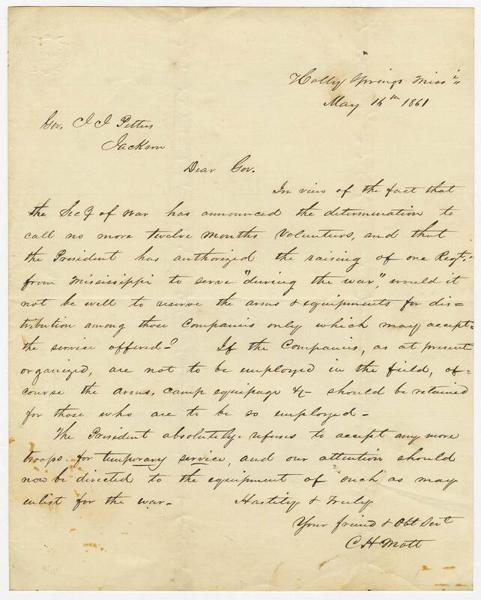 Holly Springs Missi
May 16th 1861
Gov. J J Pettus
Jackson
Dear Gov.
In view of the fact that
the Secy of War has announced the determination to
call no more twelve months Volunteers, and that
the President has authorized the raising of one Regt.
from Mississippi to serve "during the war", would it
not be well to reserve the arms & equipments for dis-
tribution among those Companies only which may accept
the service offered? If the Companies, as at present
organized, are not to be employed in the field, of
course the arms, camp equipage &c should be retained
for those who are to be so employed-
The President absolutely refuses to accept any more
troops for temporary service, and our attention should
now be directed to the equipment of such as may
enlist for the war- Hastily & Truly
Your friend & Obt Svt
C H Mott